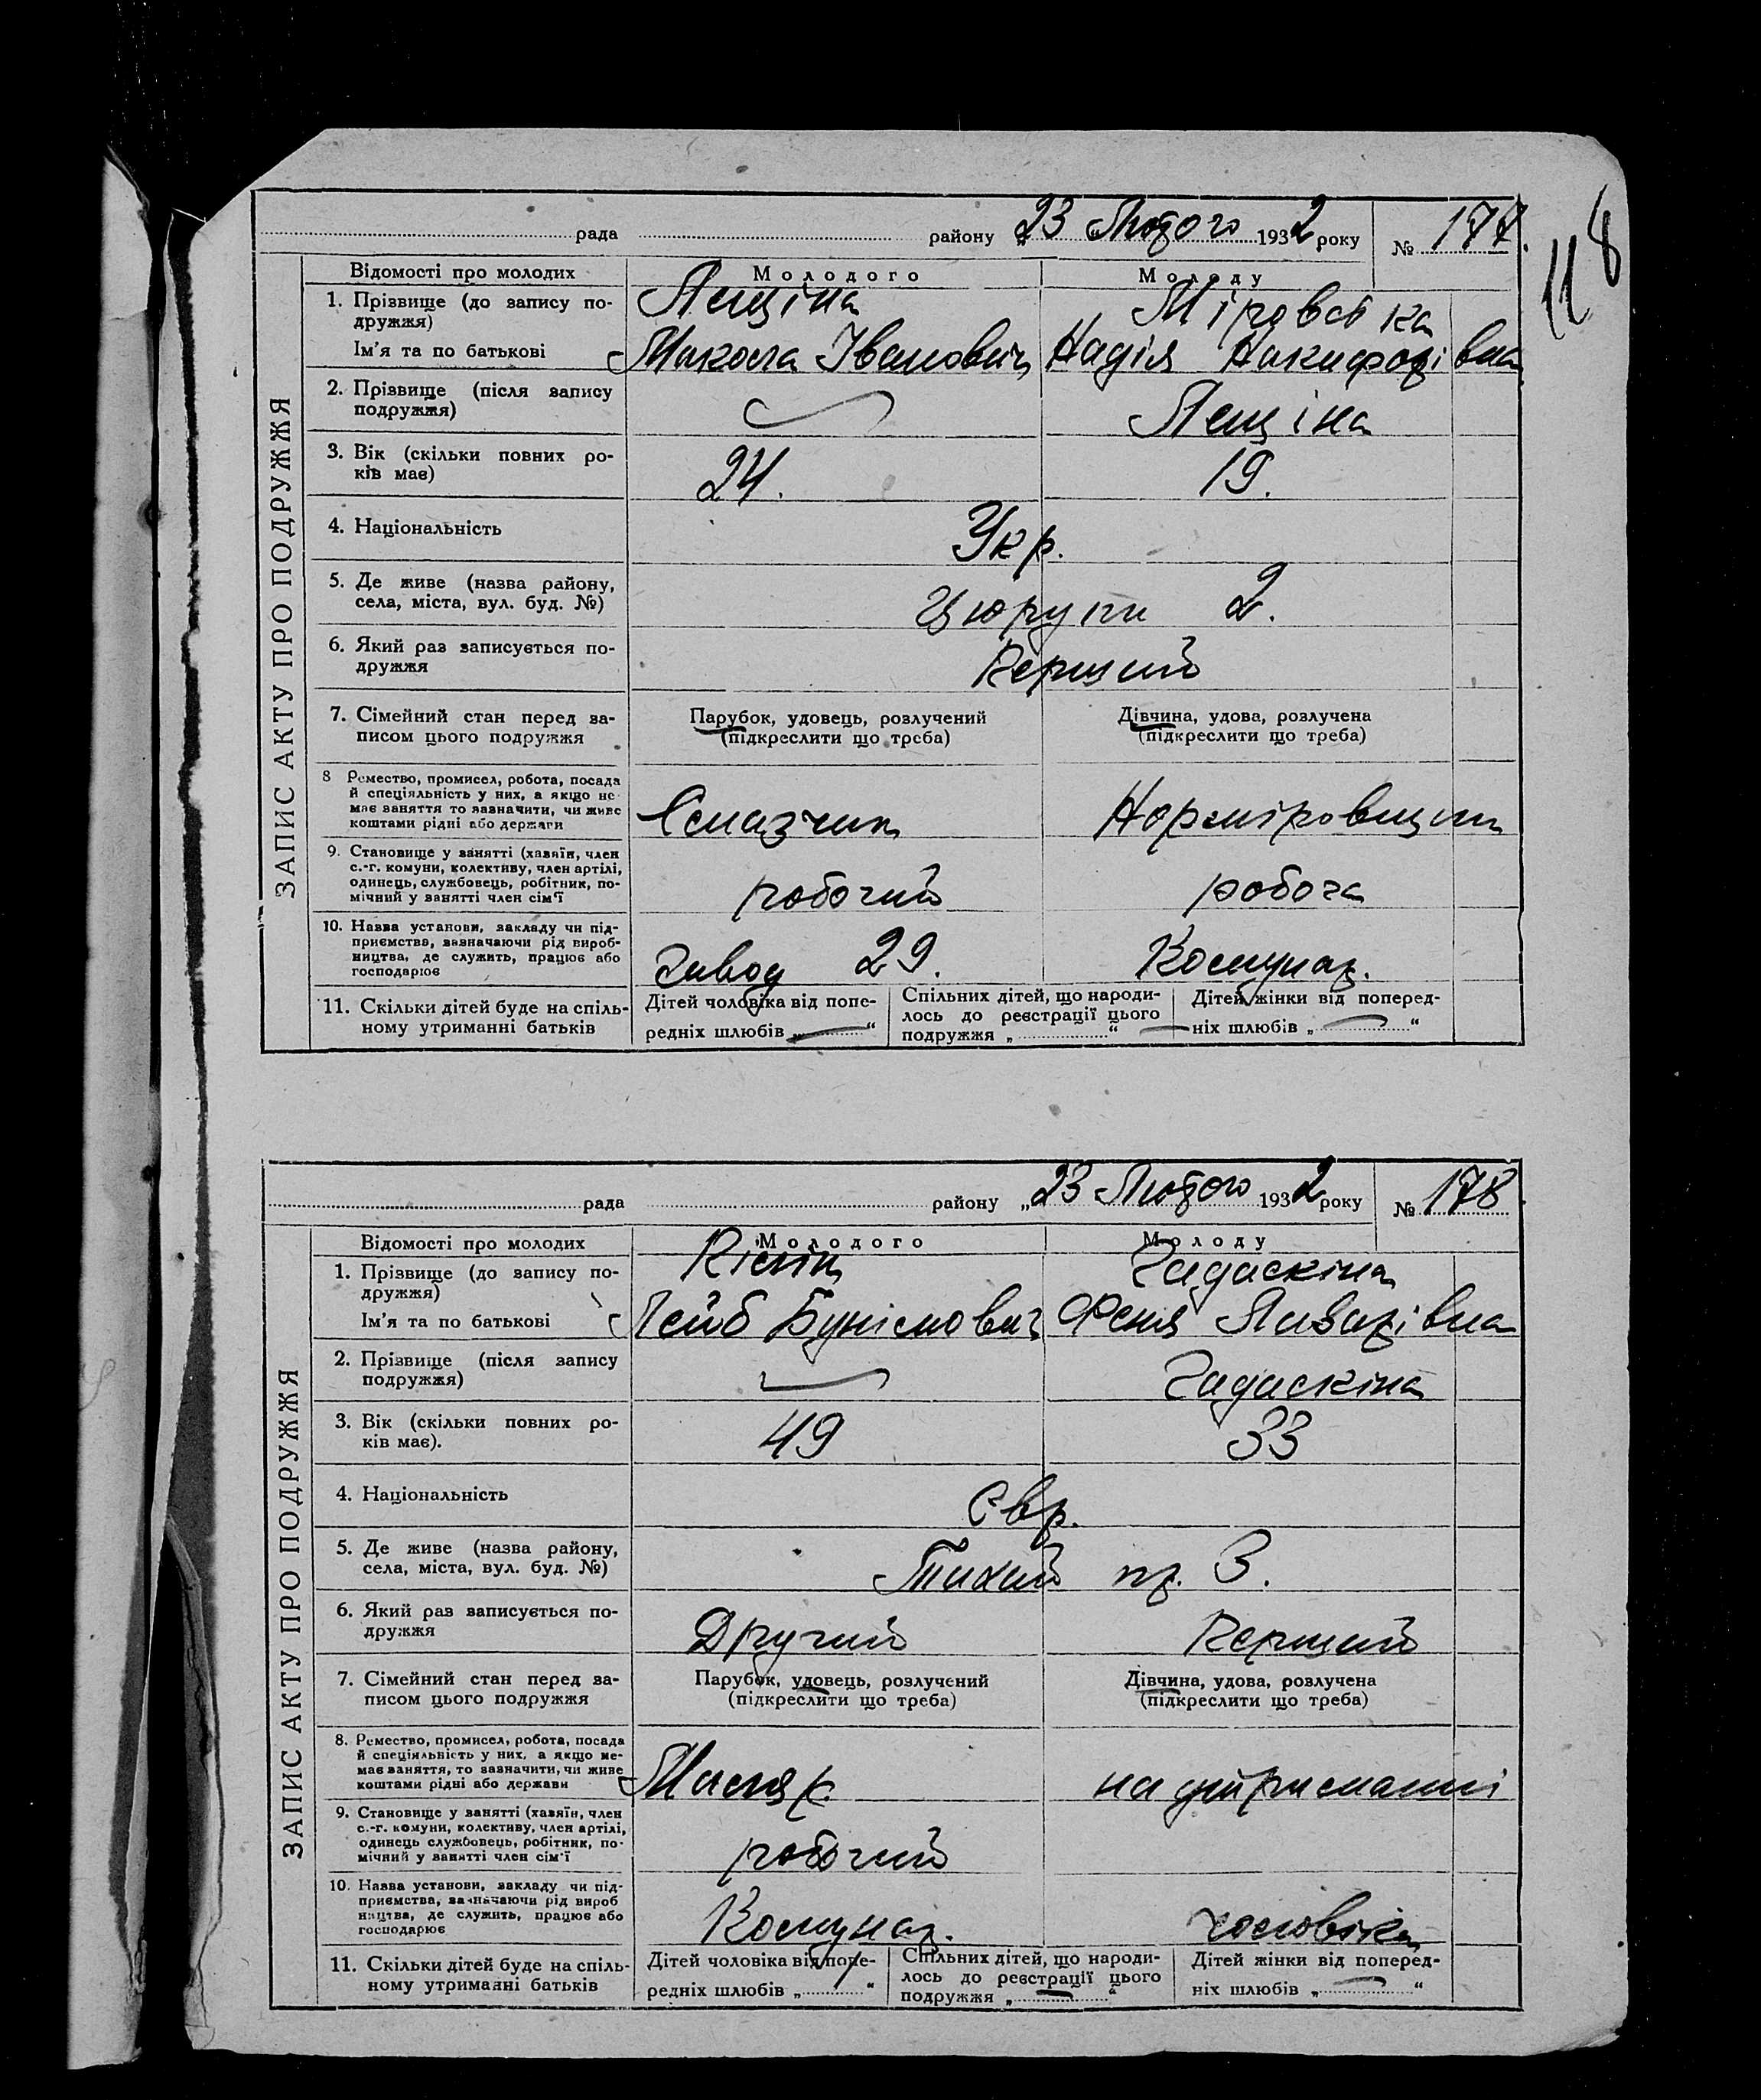 118
рада району „23 Лютого 1932 року № 177.
ЗАПИС АКТУ ПРО ПОДРУЖЖЯ
Відомості про молодих Молодого Молоду
1. Прізвище (до запису по-
дружжя) Лещіна Міровска
Ім'я та по батькові Микола Іванович Надія Никифорівна
2. Прізвище (після запису
подружжя) Лещіна
3. Вік (скільки повних ро-
ків має) 24. 19.
4. Національність Укр.
5. Де живе (назва району,
села, міста, вул. буд. №) Цюрупи 2.
6. Який раз записується по-
дружжя Перший
7. Сімейний стан перед за-
писом цього подружжя
Парубок, удовець, розлучений
(підкреслити що треба)
Дівчина, удова, розлучена
(підкреслити що треба)
8 Ремество, промисел, робота, посада
й спеціяльність у них, а якщо не-
має заняття то зазначити, чи живе
коштами рідні або держави Смазчик Норміровщик
9. Становище у занятті (хазяїн, член
с.-г. комуни, колективу, член артілі,
одинець, службовець, робітник, по-
мічний у занятті член сім'ї робочий робоча
10. Назва установи, закладу чи під-
приємства, зазначаючи рід вироб-
ництва, де служить, працює або
господарює Завод 29. Комунар.
11. Скільки дітей буде на спіль-
ному утриманні батьків
Дітей чоловіка від попе-
редніх шлюбів „ — “
Спільних дітей, що народи-
лось до реєстрації цього
подружжя „ “ —
Дітей жінки від поперед-
ніх шлюбів „ — “
рада району „23 Лютого 1932 року № 178.
ЗАПИС АКТУ ПРО ПОДРУЖЖЯ
Відомості про молодих Молодого Молоду
1. Прізвище (до запису по-
дружжя) Гадаскіна
Ім'я та по батькові Лейб Бунімович Феня Лазарівна
2. Прізвище (після запису
подружжя) — Гадаскіна
3. Вік (скільки повних ро-
ків має). 49 33
4. Національність Євр.
5. Де живе (назва району,
села, міста, вул. буд. №) Тихий пр. 3.
6. Який раз записується по-
дружжя Другий Перший
7. Сімейний стан перед за-
писом цього подружжя
Парубок, удовець, розлучений
(підкреслити що треба)
Дівчина, удова, розлучена
(підкреслити що треба)
8. Ремество, промисел, робота, посада
й спеціяльність у них, а якщо не-
має заняття, то зазначити, чи живе
коштами рідні або держави Маляр. на утриманні
9. Становище у занятті (хазяїн, член
с.-г. комуни, колективу, член артілі,
одинець службовець, робітник, по-
мічний у занятті член сім'ї робочий
10. Назва установи, закладу чи під-
приємства, зазначаючи рід вироб
ництва, де служить, працює або
господарює Комунар. чоловіка
11. Скільки дітей буде на спіль-
ному утриманні батьків
Дітей чоловіка від попе-
редніх шлюбів „ “
Спільних дітей, що народи-
лось до реєстрації цього
подружжя „ — “
Дітей жінки від поперед-
ніх шлюбів „ — “